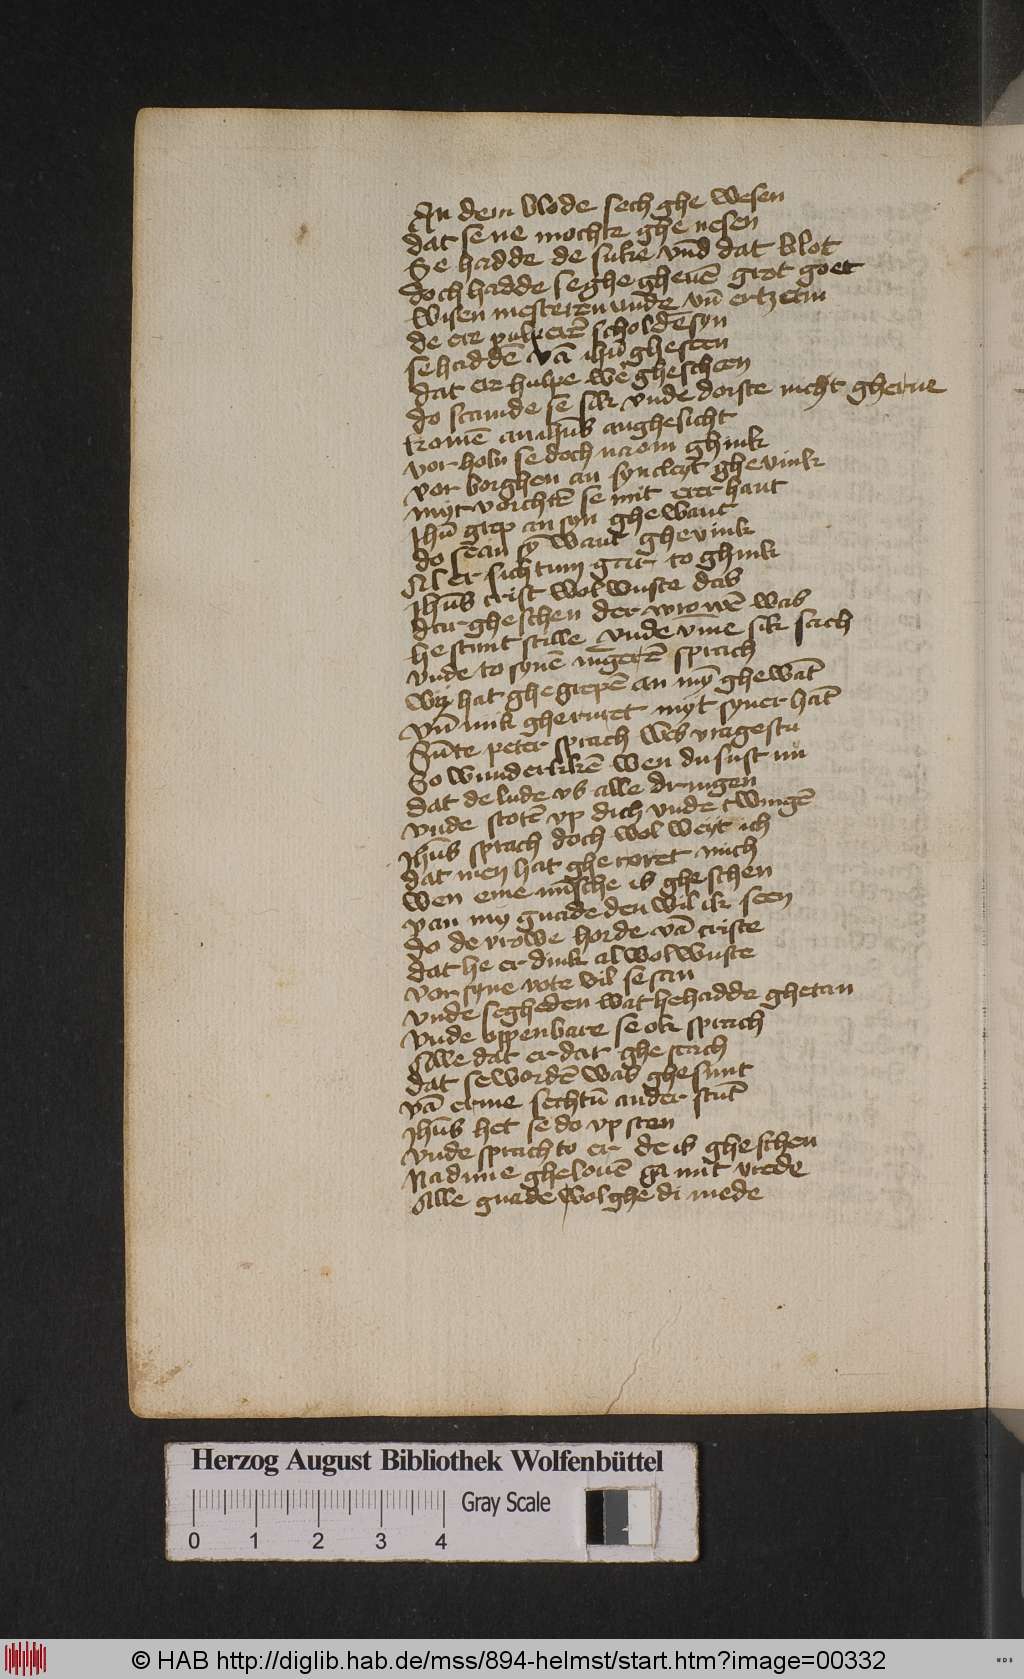 An dem blode sech ghe wesen
dat se ne mochte ghe nesen
Se hadde de suke vnd dat blot
doch hadde se ghe gheuē grot goet
wisen mesteren vnde vn̄ ertzetin
de ere pulꝟerē scholdē syn
se haddē vā ihū gheseen
dat er hulpe we ghescheen
do scamde se sik vnde dorste nicht gherne
komē an ihūs anghesicht
vor holn se doch na om ghink
vor borghen an syn cleyt ghevink
myt vorchtē se mit erer hant
Ihū grep an syn ghewant
do se an sȳ want ghevink
Al er sichtum gar to ghink
Ihūs crist wol wuste das
dar gheschen der vrowē was
he stunt stille vnde vme sik sach
vnde to synē ingerē sprach
wy hat ghegrepē an mȳ ghewāt
vn̄ mik gheruret myt syner hāt
Sūte peter sprach wes vragestu
So wunderlikē wen du sust nu
dat de lude vs alle dringen
vnde stotē vp dich vnde twingē
Ihūs sprach doch wol weyt ich
dat men hat gheroret mich
wen eme mīsche is gheschen
van my gnade den wil ik seen
do de vrowe horde vā criste
dat he er dink al wol wuste
vor syne vote vil se san
vnde segheden wat he hadde ghetan
vnde oppenbare se ok sprach
Alle dat er dar ghe scach
dat se wordē was ghesunt
vā erme sechtū ander stūt
Ihūs het se do vp sten
vnde sprach to er de is gheschen
Na dime ghelouē ga mit vrede
Alle gnade wolghe di mede
Herzog August Bibliothek Wolfenbüttel
0 1 2 3 4
Gray Scale
© HAB http://diglib.hab.de/mss/894-helmst/start.htm?image=00332